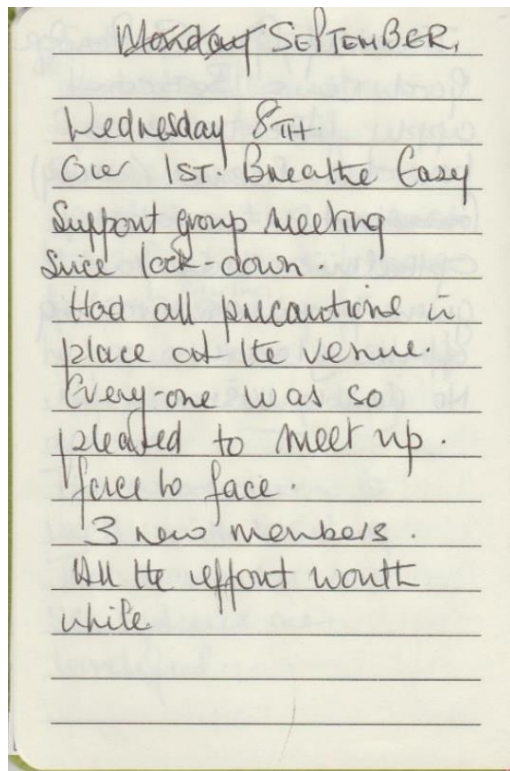 Monday SEPTEMBER.
Wednesday 8TH.
Our 1ST. Breathe Easy
Support group meeting
Since lock-down.
Had all precautions in
place at the venue.
Every-one was so
pleased to meet up.
face to face.
3 new members.
All the effort worth
while